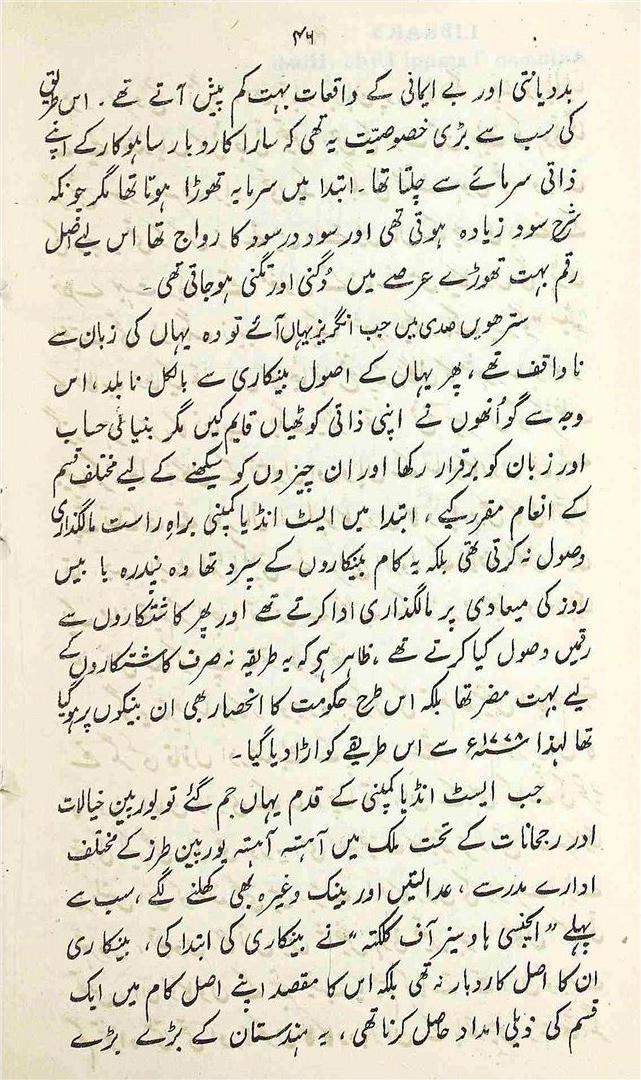 ۴۶
بددیانتی اور بے ایمانی کے واقعات بہت کم پیش آتے تھے ۔ اس طریق
کی سب سے بڑی خصوصیت یہ تھی کہ سارا کاروبار ساہوکار کے اپنے
ذاتی سرمائے سے چلتا تھا ۔ ابتدا میں سرمایہ تھوڑا ہوتا تھا مگر چونکہ
شرح سود زیادہ ہوتی تھی اور سود در سود کا رواج تھا اس لیے اصل
رقم بہت تھوڑے عرصے میں دُگنی اور تگنی ہو جاتی تھی ۔
سترھویں صدی میں جب انگریز یہاں آئے تو وہ یہاں کی زبان سے
ناواقف تھے ، پھر یہاں کے اصول بینکاری سے بالکل نابلد ، اس
وجہ سے گو اُنھوں نے اپنی ذاتی کوٹھیاں قایم کیں مگر بنیائی حساب
اور زبان کو برقرار رکھا اور ان چیزوں کو سیکھنے کے لیے مختلف قسم
کے انعام مقرر کیے ، ابتدا میں ایسٹ انڈیا کمپنی براہِ راست مالگذاری
وصول نہ کرتی تھی بلکہ یہ کام بینکاروں کے سپرد تھا وہ پندرہ یا بیس
روز کی میعادی پر مالگذاری ادا کرتے تھے اور پھر کاشتکاروں سے
رقمیں وصول کیا کرتے تھے ، ظاہر ہی کہ یہ طریقہ نہ صرف کاشتکاروں کے
لیے بہت مضر تھا بلکہ اس طرح حکومت کا انحصار بھی ان بینکوں پر ہو گیا
تھا لہذا ۱۷۷۸ء سے اس طریقے کو اڑا دیا گیا ۔
جب ایسٹ انڈیا کمپنی کے قدم یہاں جم گئے تو یورپین خیالات
اور رجحانات کے تحت ملک میں آہستہ آہستہ یورپین طرز کے مختلف
ادارے مدرسے ، عدالتیں اور بینک وغیرہ بھی کھلنے لگے ، سب سے
پہلے " ایجنسی ہاوسیز آف کلکتہ " نے بینکاری کی ابتدا کی ، بینکاری
ان کا اصل کاروبار نہ تھی بلکہ اس کا مقصد اپنے اصل کام میں ایک
قسم کی ذیلی امداد حاصل کرنا تھی ، یہ ہندستان کے بڑے بڑے